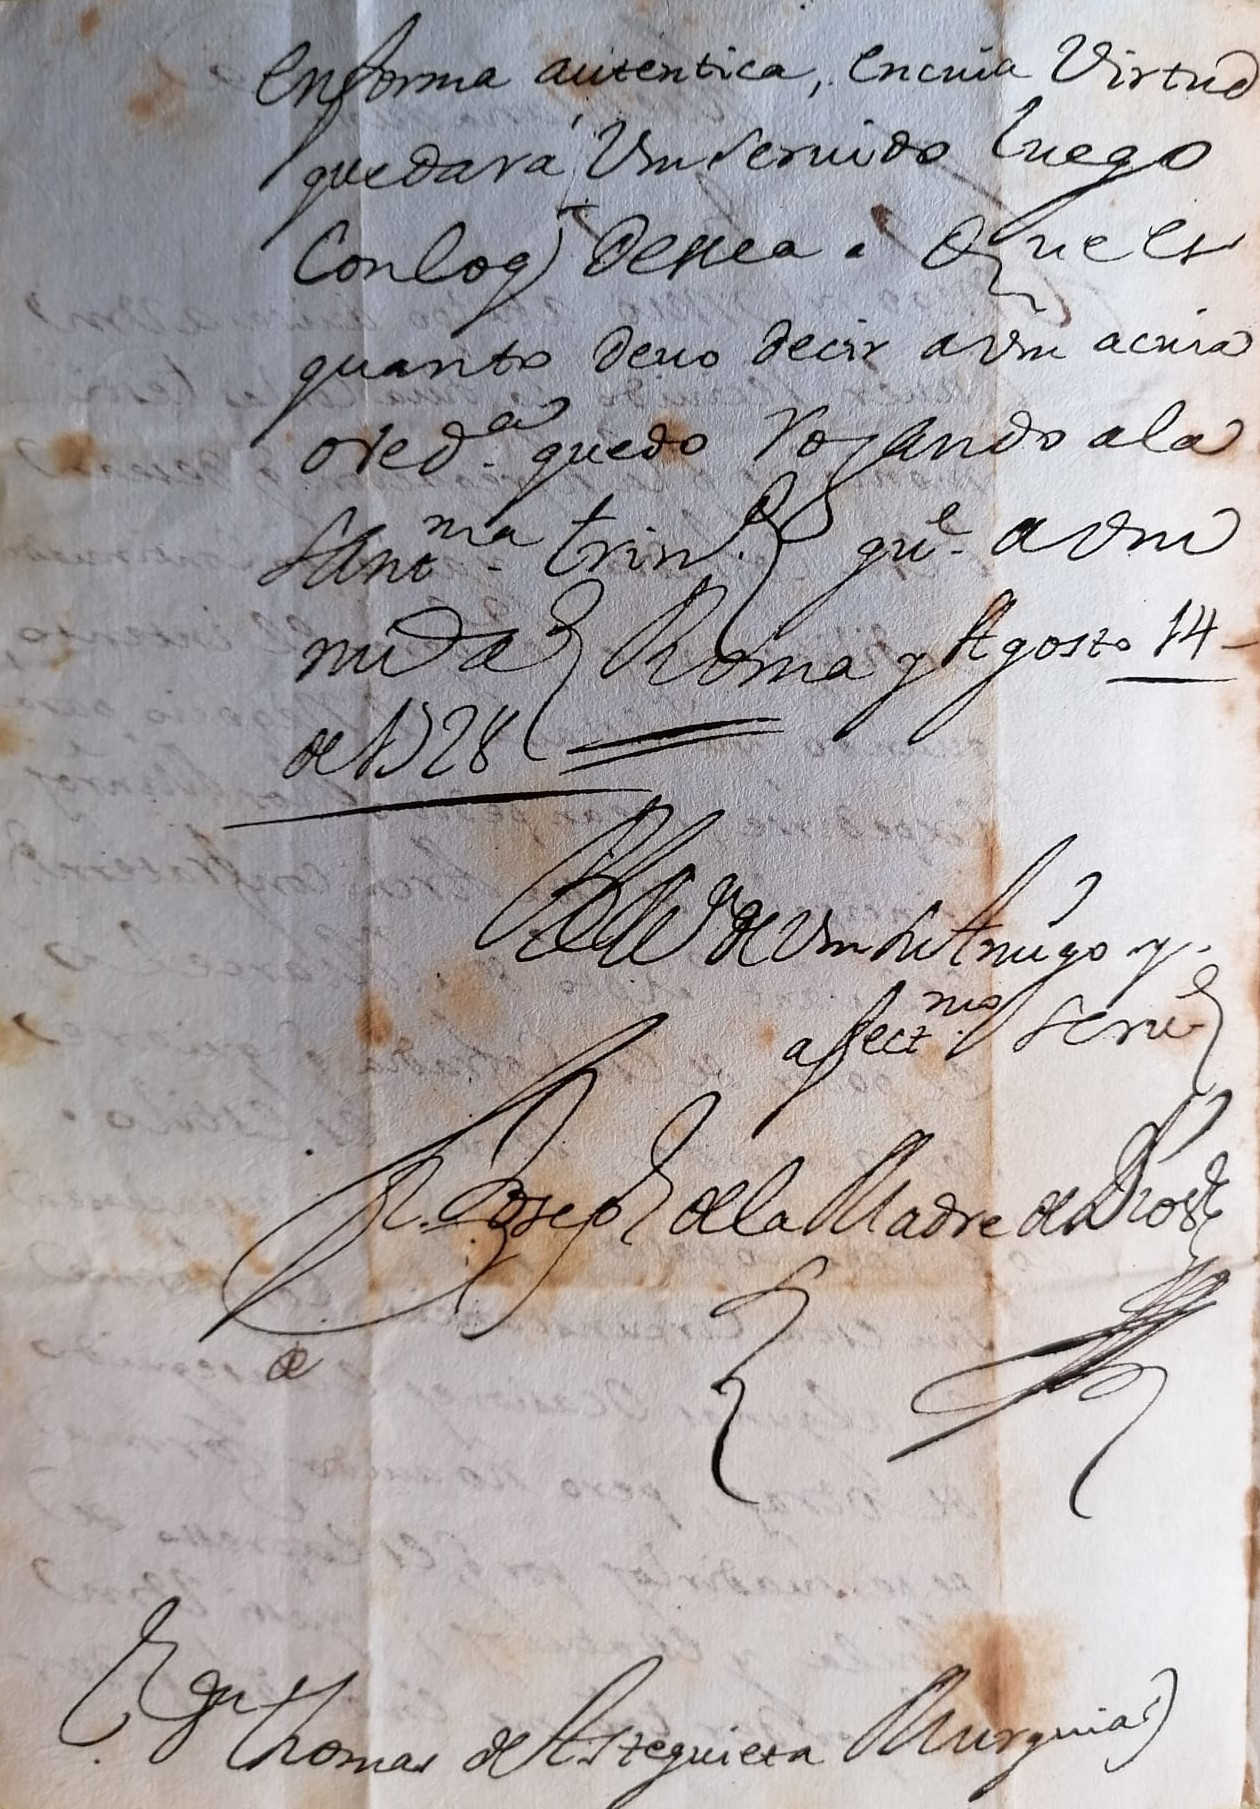 en forma autentica, en cuia virtud
quedará Vm servido luego
con lo q desea. Que es
quanto devo decir a vm a cuia
oved.a quedo rogando a la
Sant.ma Trin.d gu.e a vm
m a Roma y Agosto 14
de 1728
de Vm su Amigo y
afect.mo serv.
Joseph de la Madre de Dios
S.r D.n Thomas de Azteguieta Murguia